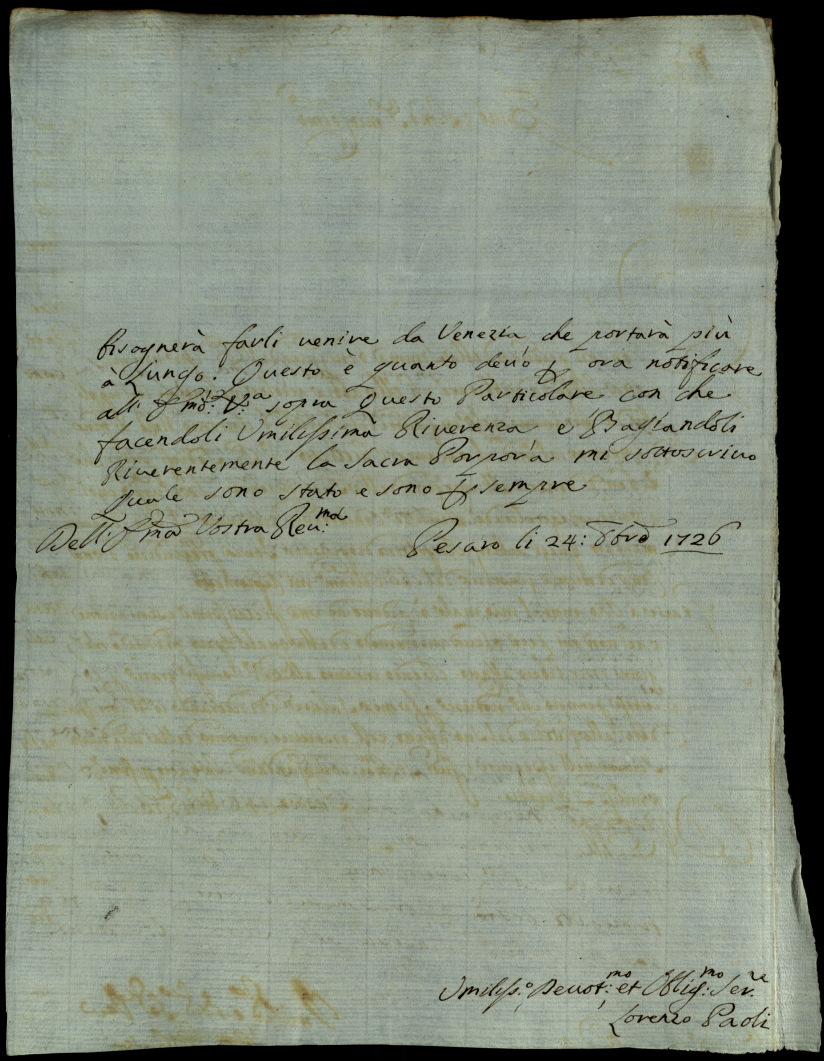 bisognerà farli uenire da Venezia che portarà più
à lungo. Questo è quanto deuo p ora notificare
all' Em.ᶻᵃ V.ᵃ sopra Questo Particolare con che
facendoli Vmilissima Riuerenza e Bagiandoli
Riuerentemente la Sacra Porpora mi sottoscriuo
quale sono stato e sono p sempre
Dell' Em.ᶻᵃ Vostra Reu:ᵐᵃ
Pesaro li 24: Bbre 1726
Vmiliss.º Deuot:ᵐᵒ et Oblig:ᵐᵒ Ser.ʳᵉ
Lorenzo Paoli